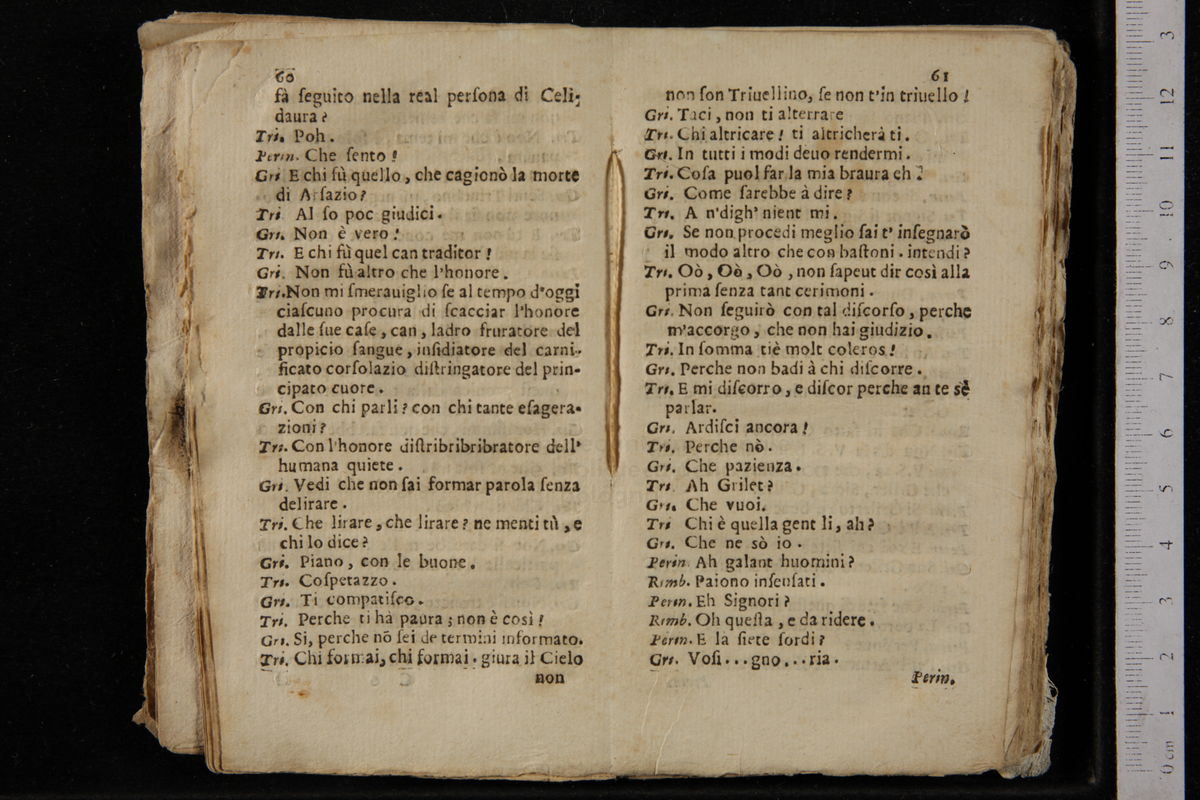 60
fà ſeguito nella real perſona di Celi-
daura?
Tri. Poh.
Perin. Che ſento!
Gri E chi fù quello, che cagionò la morte
di Arſazio?
Tri Al ſo poc giudici.
Gri. Non è vero!
Tri. E chi fù quel can traditor!
Gri. Non fù altro che l'honore.
Tri. Non mi ſmerauiglio ſe al tempo d'oggi
ciaſcuno procura di ſcacciar l'honore
dalle ſue caſe, can, ladro fruratore del
propicio ſangue, inſidiatore del carni-
ficato corſolazio diſtringatore del prin-
cipato cuore.
Gri. Con chi parli? con chi tante eſagera-
zioni?
Tri. Con l'honore diſtribribribratore dell'
humana quiete.
Gri. Vedi che non ſai formar parola ſenza
delirare.
Tri. Che lirare, che lirare? ne menti tù, e
chi lo dice?
Gri. Piano, con le buone.
Tri. Coſpetazzo.
Gri. Ti compatiſco.
Tri. Perche ti hà paura; non è così!
Gri. Si, perche nõ ſei de termini informato.
Tri. Chi formai, chi formai. giura il Cielo
non
61
non ſon Triuellino, ſe non t'in triuello!
Gri. Taci, non ti alterrare
Tri. Chi altricare! ti altricherà ti.
Gri. In tutti i modi deuo rendermi.
Tri. Coſa puol far la mia braura eh?
Gri. Come ſarebbe à dire?
Tri. A n'digh' nient mi.
Gri. Se non procedi meglio ſai t' inſegnarò
il modo altro che con baſtoni. intendi?
Tri. Oò, Oò, Oò, non ſapeut dir così alla
prima ſenza tant cerimoni.
Gri. Non ſeguirò con tal diſcorſo, perche
m'accorgo, che non hai giudizio.
Tri. In ſomma tiè molt coleros!
Gri. Perche non badi à chi diſcorre.
Tri. E mi diſcorro, e diſcor perche an te sè
parlar.
Gri. Ardiſci ancora!
Tri. Perche nò.
Gri. Che pazienza.
Tri. Ah Grilet?
Gri. Che vuoi.
Tri Chi è quella gent li, ah?
Gri. Che ne sò io.
Perin. Ah galant huomini?
Rimb. Paiono inſenſati.
Perin. Eh Signori?
Rimb. Oh queſta, e da ridere.
Perin. E la ſiete ſordi?
Gri. Voſi...gno...ria.
Perin.
3
12
11
10
9
8
7
6
5
4
3
2
1
0 cm